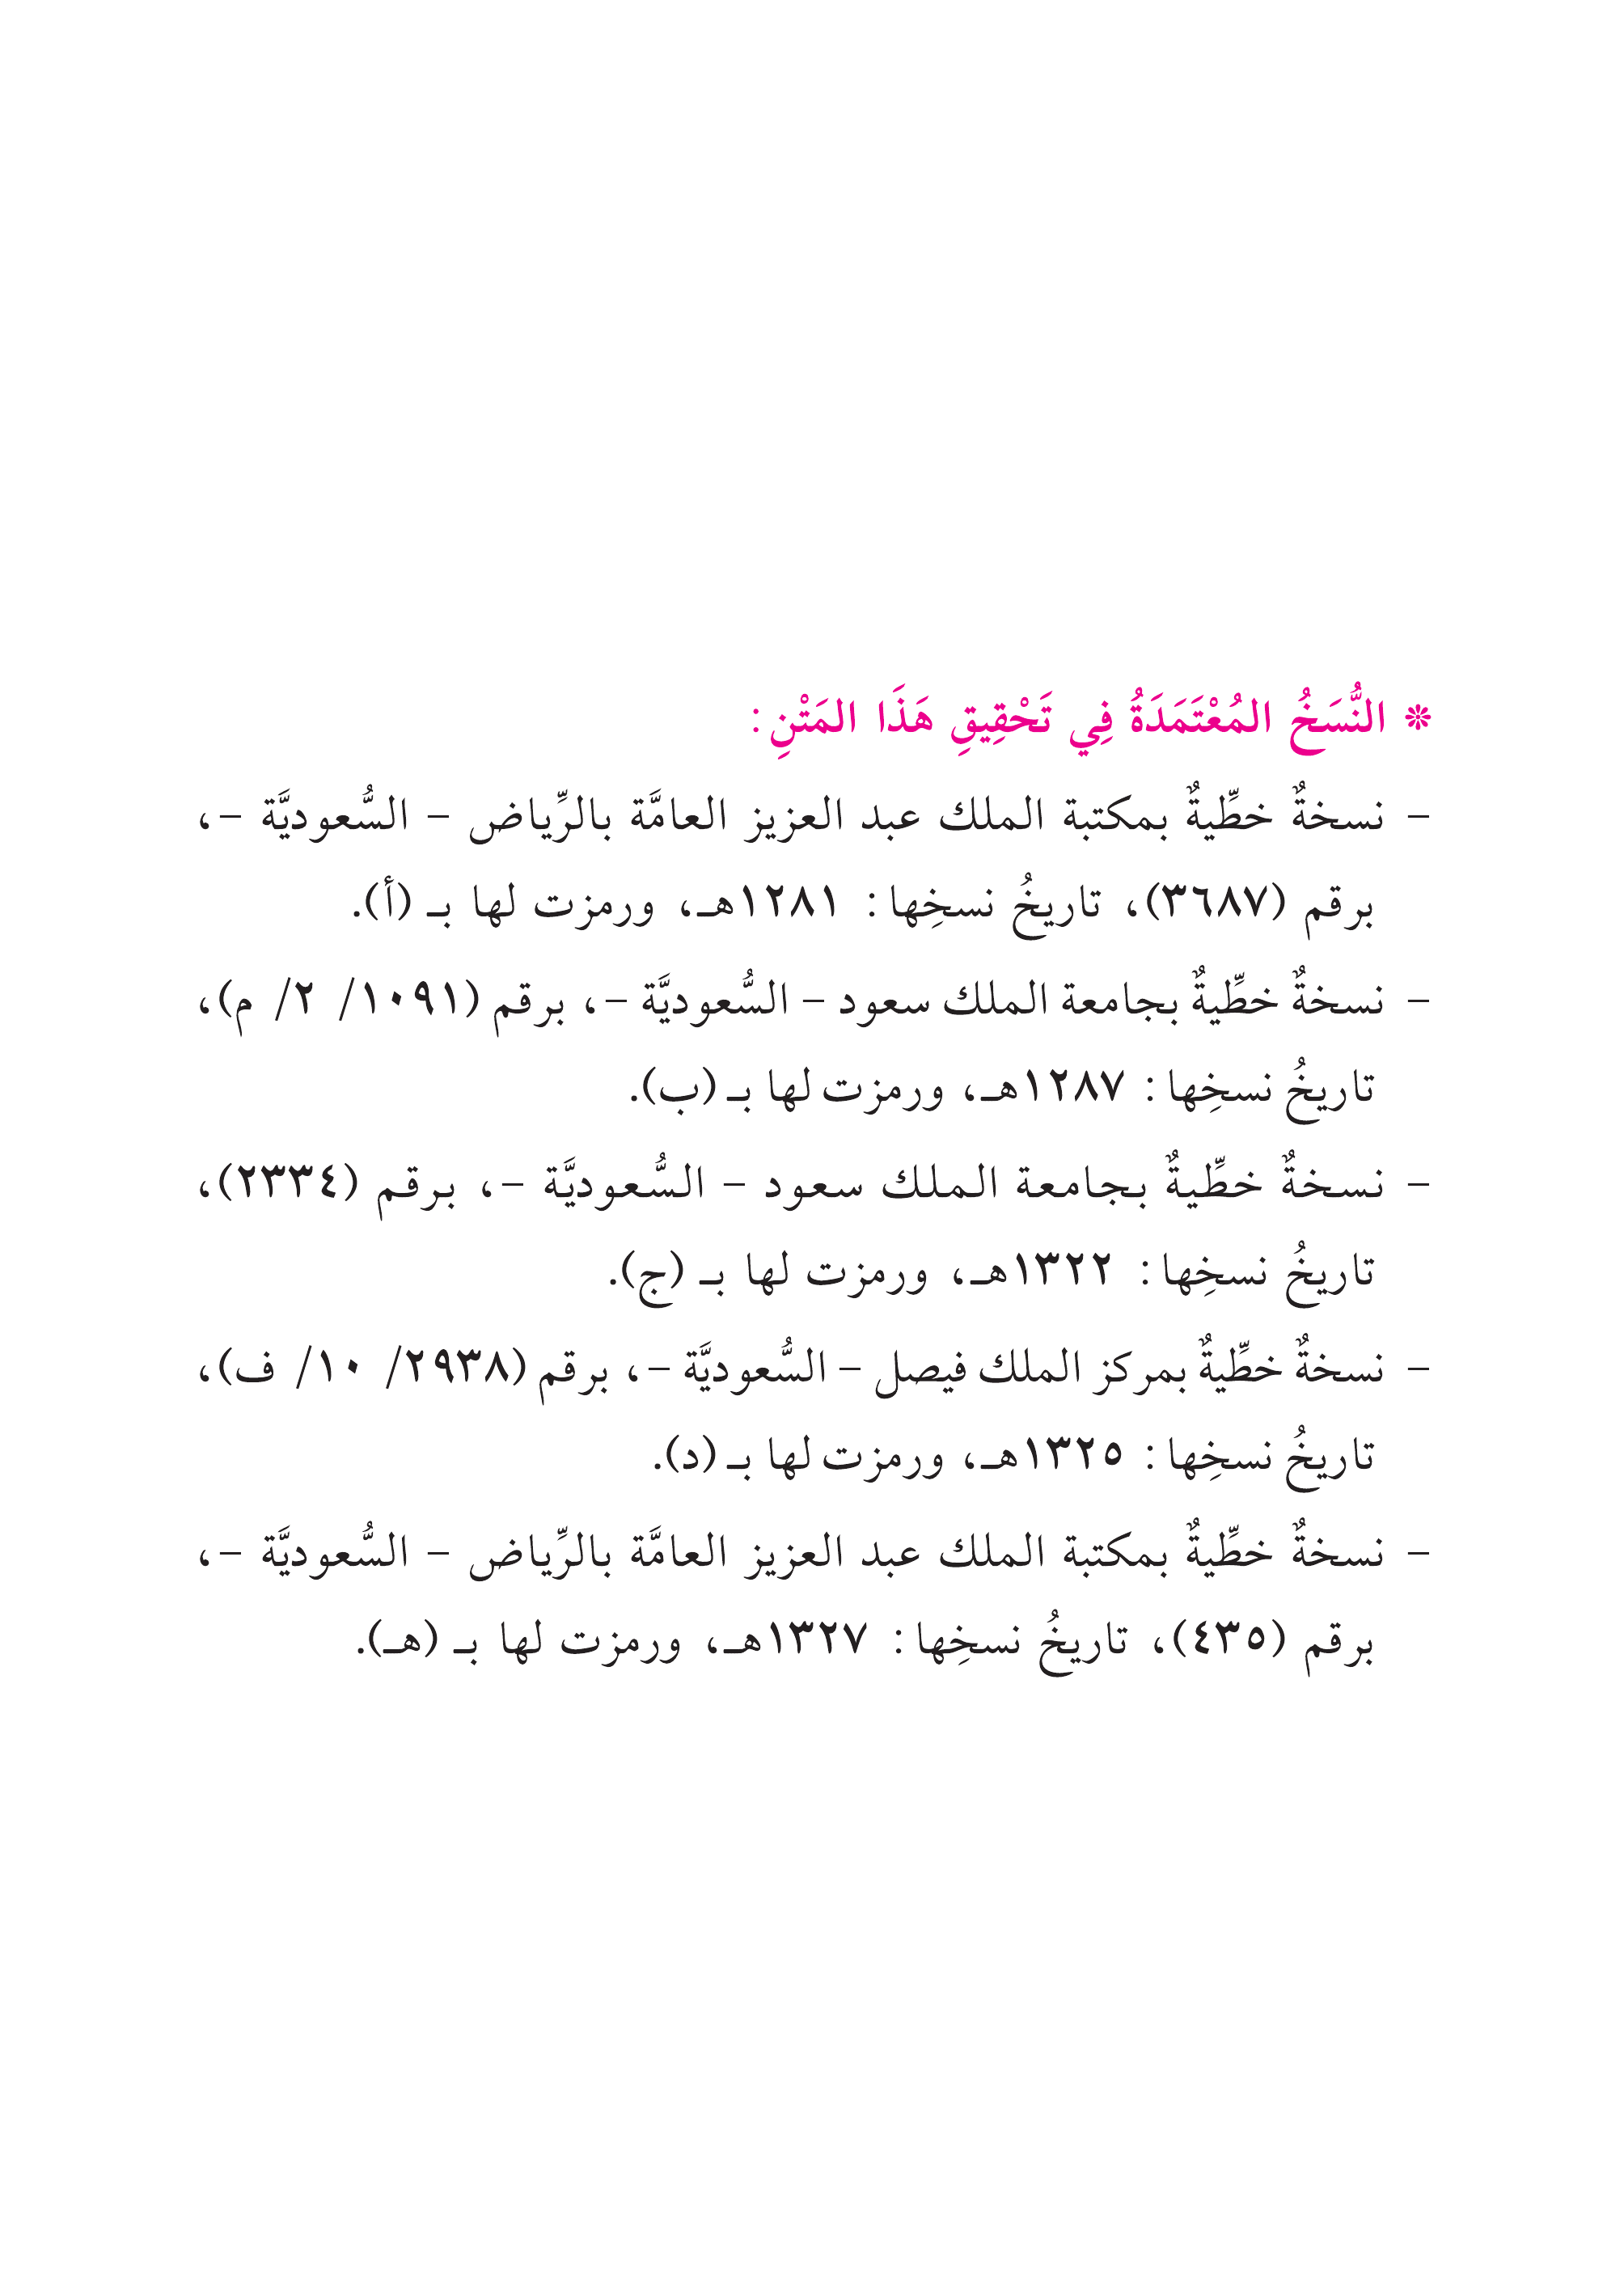 * النُّسَخُ المُعْتَمَدَةُ فِي تَحْقِيقِ هَذَا المَتْنِ:
- نسخةٌ خطِّيةٌ بمكتبة الملك عبد العزيز العامَّة بالرِّياض - السُّعوديَّة -،
برقم (٣٦٨٧)، تاريخُ نسخِها: ١٢٨١هـ، ورمزت لها بـ (أ).
- نسخةٌ خطِّيةٌ بجامعة الملك سعود - السُّعوديَّة -، برقم (١٠٩١/ ٢/ م)،
تاريخُ نسخِها: ١٢٨٧هـ، ورمزت لها بـ (ب).
- نسخةٌ خطِّيةٌ بجامعة الملك سعود - السُّعوديَّة -، برقم (٢٣٣٤)،
تاريخُ نسخِها: ١٣٢٢هـ، ورمزت لها بـ (ج).
- نسخةٌ خطِّيةٌ بمركز الملك فيصل - السُّعوديَّة -، برقم (٢٩٣٨/ ١٠/ ف)،
تاريخُ نسخِها: ١٣٢٥هـ، ورمزت لها بـ (د).
- نسخةٌ خطِّيةٌ بمكتبة الملك عبد العزيز العامَّة بالرِّياض - السُّعوديَّة -،
برقم (٤٣٥)، تاريخُ نسخِها: ١٣٢٧هـ، ورمزت لها بـ (هـ).